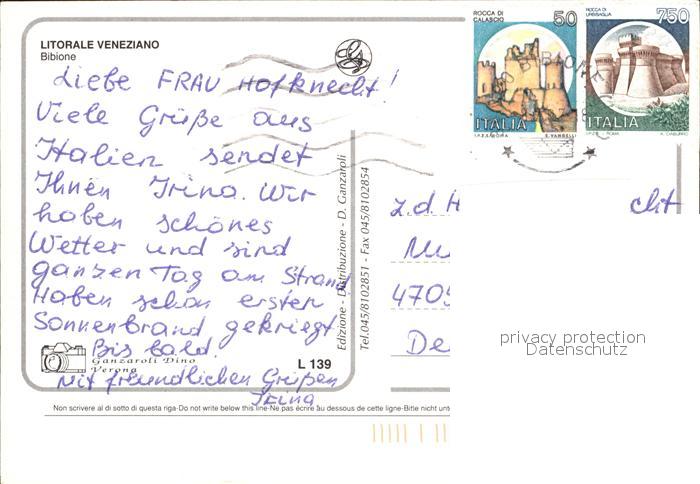 LITORALE VENEZIANO
Bibione
Liebe FRAU Hofknecht!
Viele Grüße aus
Italien sendet
Ihnen Irina. Wir
haben schönes
Wetter und sind
ganzen Tag am Strand
Haben schon ersten
Sonnenbrand gekriegt.
Bis bald.
Mit freundlichen Grüßen
Irina
Ganzaroli Dino
Verona
L 139
Non scrivere al di sotto di questa riga-Do not write below this line-Ne pas écrire au dessous de cette ligne-Bitte nicht unt
Edizione - Distribuzione - D. Ganzaroli
Tel.045/8102851 - Fax 045/8102854
ROCCA DI
CALASCIO
50
ITALIA
I.P.Z.S. ROMA E. VANGELLI
ROCCA DI
URBISAGLIA
750
ITALIA
I.P.Z.S. - ROMA
BIBIONE
z.d. H cht
Mu
4705
De
privacy protection
Datenschutz